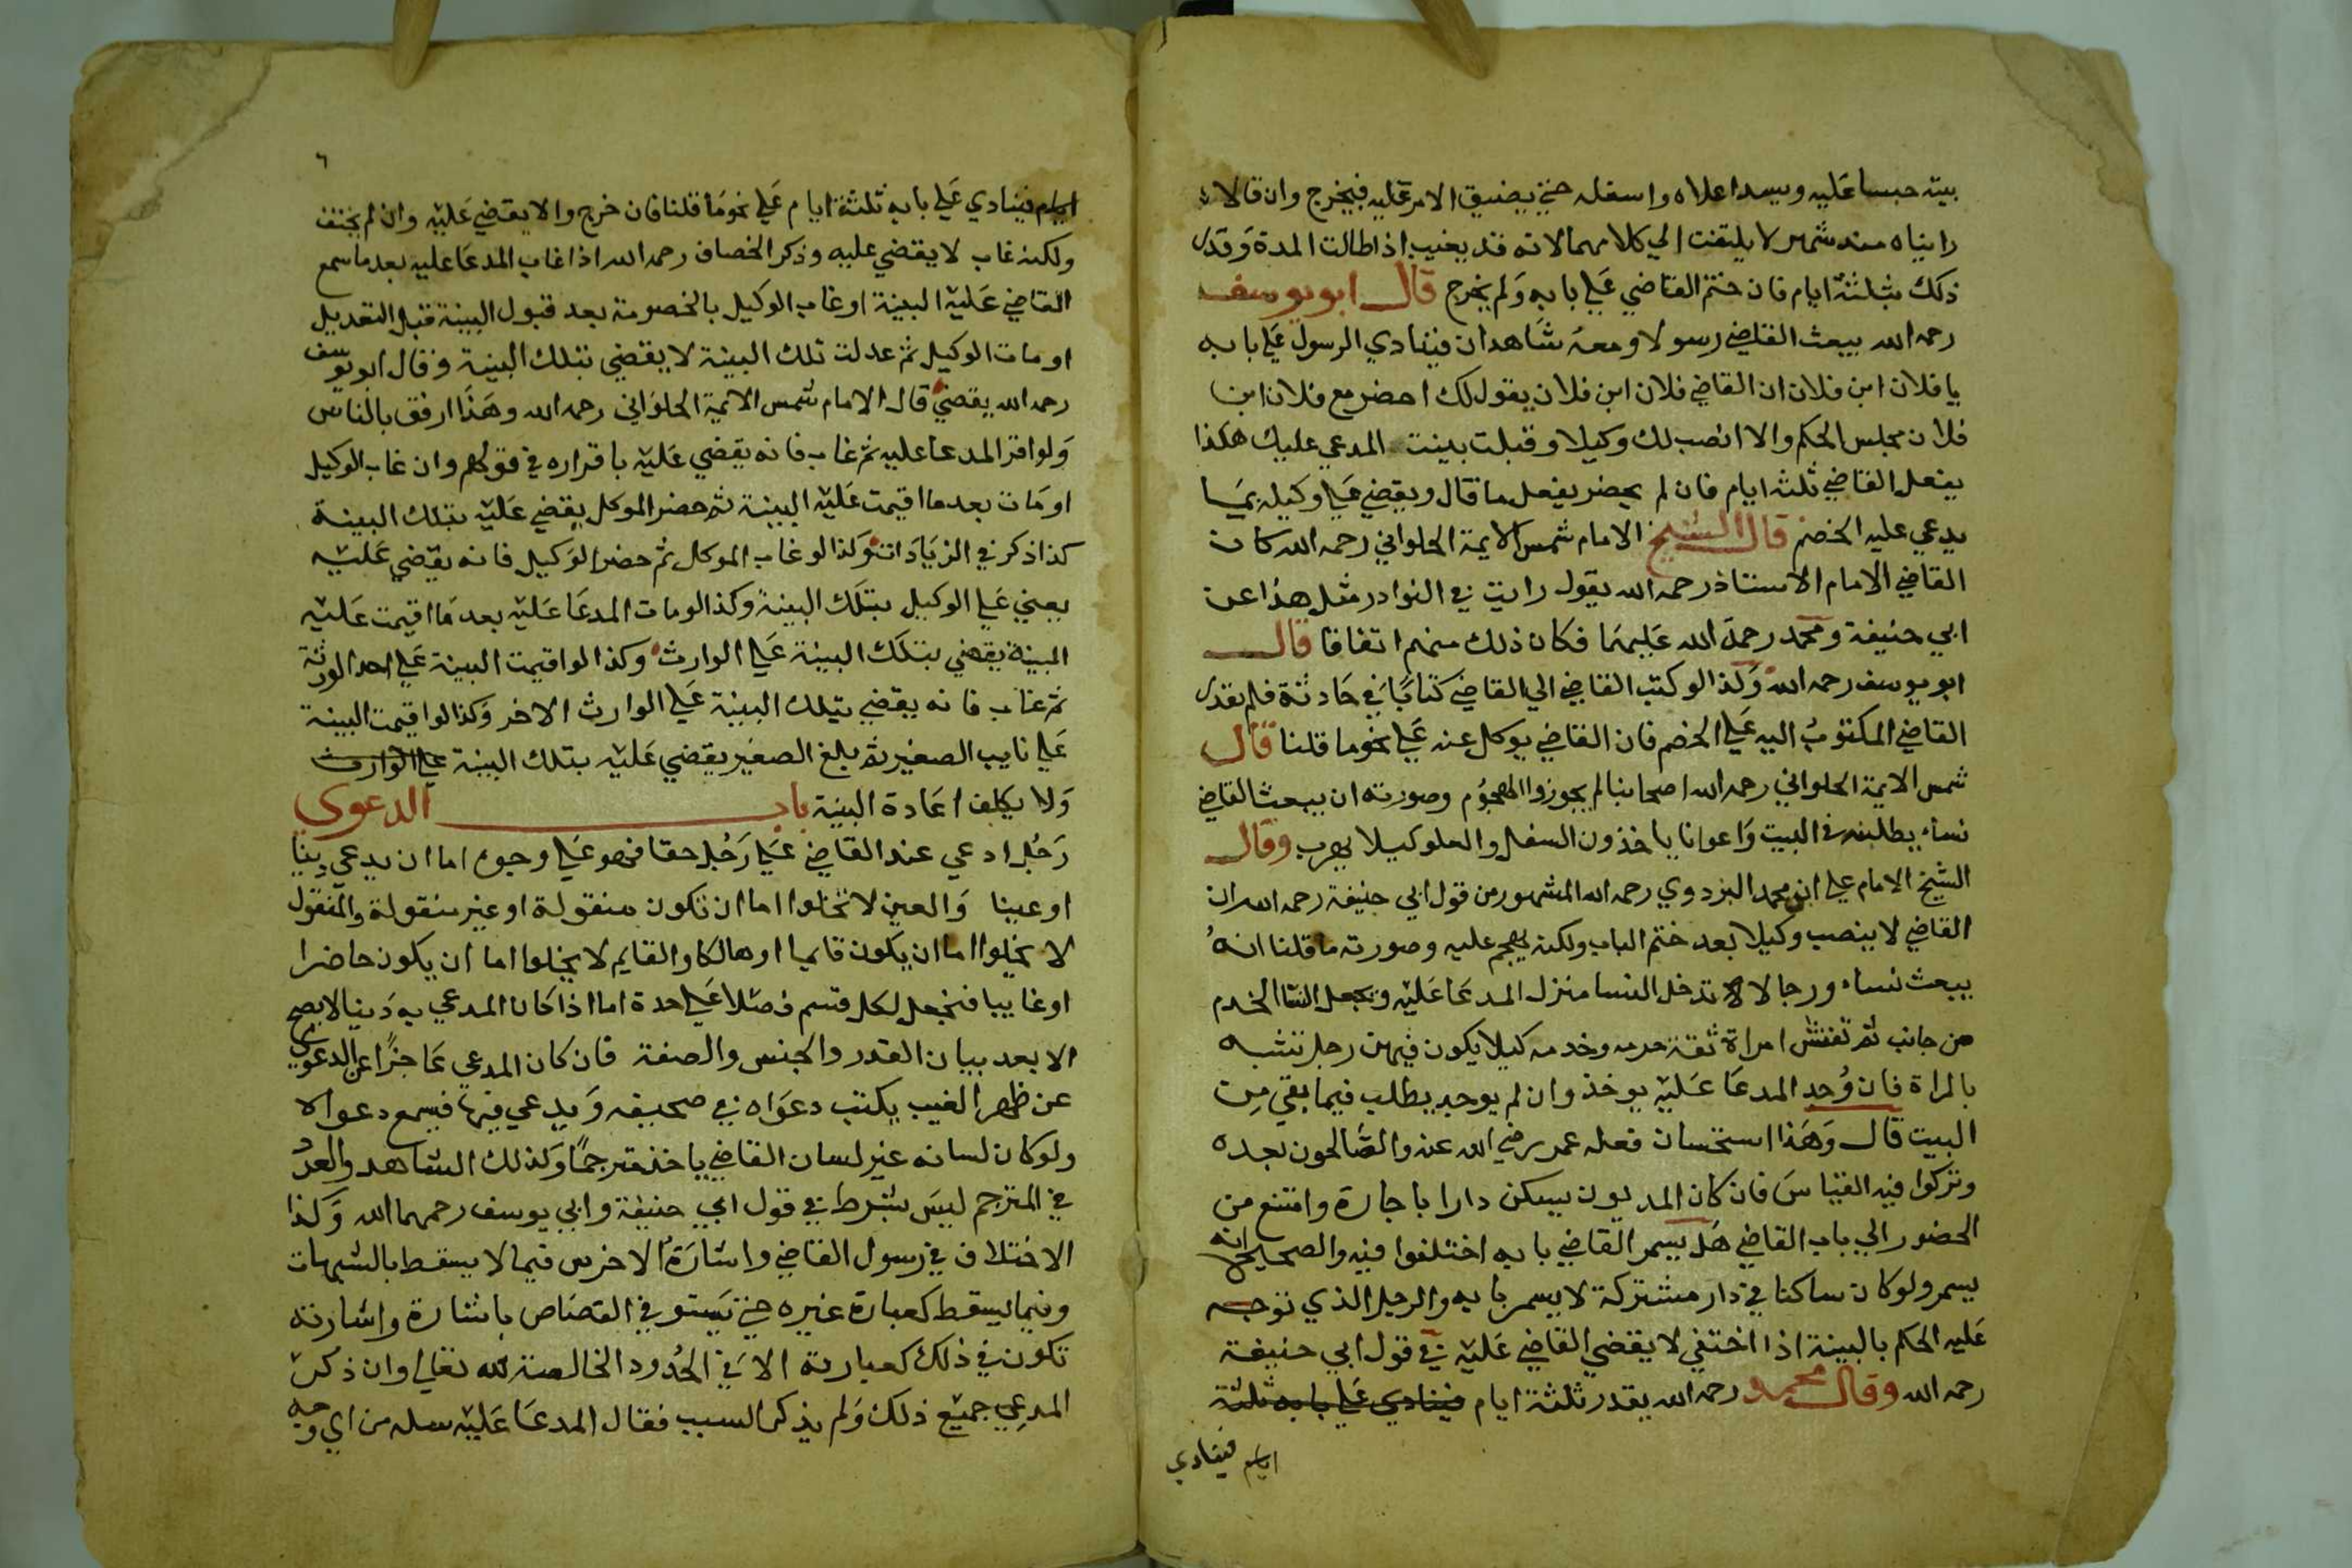 بيته حبسا عليه ويسد اعلاه واسفله حتي يضيق الامر عليه فيخرج وان قالا
رايناه منذ شهر لا يلتفت الي كلامهما لانه قد يغيب اذا طالت المدة وقدر
ذلك بثلثة ايام فان ختم القاضي علي بابه ولم يخرج قال ابو يوسف
رحمه الله يبعث القاضي رسولا ومعه شاهدان فينادي الرسول علي بابه
يا فلان ابن فلان ان القاضي فلان ابن فلان يقول لك احضر مع فلان ابن
فلان مجلس الحكم والا انصب لك وكيلا وقبلت بينت المدعي عليك هكذا
يفعل القاضي ثلثه ايام فان لم يحضر يفعل ما قال ويقضي علي وكيله بما
يدعي عليه الخصم قال الشيخ الامام شمس الايمة الحلواني رحمه الله كان
القاضي الامام الاستاذ رحمه الله يقول رايت في النوادر مثل هذا عن
ابي حنيفة ومحمد رحمة الله عليهما فكان ذلك منهم اتفاقا قال
ابو يوسف رحمه الله وكذا لو كتب القاضي الي القاضي كتابا في حادثة فلم يقدر
القاضي المكتوب اليه علي الخصم فان القاضي يوكل عنه علي نحو ما قلنا قال
شمس الايمة الحلواني رحمه الله اصحابنا لم يجوزوا الهجوم وصورته ان يبعث القاضي
نساء يطلبنه في البيت واعوانا ياخذون السفل والعلو كيلا يهرب وقال
الشيخ الامام علي ابن محمد البزدوي رحمه الله المشهور من قول ابي حنيفة رحمه الله ان
القاضي لا ينصب وكيلا بعد ختم الباب ولكنه يهجم عليه وصورته ما قلنا انه
يبعث نساء ورجالا تدخل النسا منزل المدعا عليه ويجعل النسا الخدم
من جانب ثم تفتش امراة ثقة حرمه وخدمه كيلا يكون فيهن رجل تشبه
بالمراة فان وُجد المدعا عليه يوخذ وان لم يوجد يطلب فيما بقي من
البيت قال وهذا استحسان فعله عمر رضي الله عنه والصالحون بعده
وتركوا فيه القياس فان كان المديون يسكن دارا باجارة وامتنع من
الحضور الي باب القاضي هل يسمر القاضي بابه اختلفوا فيه والصحيح انه
يسمر ولو كان ساكنا في دار مشتركة لا يسمر بابه والرجل الذي توجه
عليه الحكم بالبينة اذا اختفي لا يقضي القاضي عليه في قول ابي حنيفة
رحمه الله وقال محمد رحمه الله يقدر ثلثة ايام فينادي علي بابه ثلثة
ايام فينادي
٦
ايام فينادي علي بابه ثلثة ايام علي نحو ما قلنا فان خرج والا يقضي عليه وان لم يختف
ولكنه غاب لا يقضي عليه وذكر الخصاف رحمه الله اذا غاب المدعا عليه بعد ما سمع
القاضي عليه البينة او غاب الوكيل بالخصومة بعد قبول البينة قبل التعديل
او مات الوكيل ثم عدلت تلك البينة لا يقضي بتلك البينة وقال ابو يوسف
رحمه الله يقضي قال الامام شمس الايمة الحلواني رحمه الله وهذا ارفق بالناس
ولو اقر المدعا عليه ثم غاب فانه يقضي عليه باقراره في قولهم وان غاب الوكيل
او مات بعد ما اقيمت عليه البينة ثم حضر الموكل يقضي عليه بتلك البينة
كذا ذكر في الزيادات وكذا لو غاب الموكل ثم حضر الوكيل فانه يقضي عليه
يعني علي الوكيل بتلك البينة وكذا لو مات المدعا عليه بعد ما اقيمت عليه
البينة يقضي بتلك البينة علي الوارث وكذا لو اقيمت البينة علي احد الورثة
ثم غاب فانه يقضي بتلك البينة علي الوارث الاخر وكذا لو اقيمت البينة
علي نايب الصغير ثم بلغ الصغير يقضي عليه بتلك البينة علي الوارث
ولا يكلف اعادة البينة باب الدعوي
رجل ادعي عند القاضي علي رجل حقا فهو علي وجوه اما ان يدعي دينا
او عينا والعين لا تخلوا اما ان تكون منقولة او غير منقولة والمنقول
لا يخلوا اما ان يكون قايما او هالكا والقايم لا يخلوا اما ان يكون حاضرا
او غايبا فنجعل لكل قسم فصلا علي حدة اما اذا كان المدعي به دينا لا يصح
الا بعد بيان القدر والجنس والصفة فان كان المدعي عاجزا عن الدعوي
عن ظهر الغيب يكتب دعواه في صحيفه ويدعي فيها فيسمع دعواه
ولو كان لسانه غير لسان القاضي ياخذ مترجما وكذلك الشاهد والعدد
في المترجم ليس بشرط في قول ابي حنيفة وابي يوسف رحمهما الله وكذا
الاختلاف في رسول القاضي واشارة الاخرس فيما لا يسقط بالشبهات
وفيما يسقط كعبارة غيره حتي يستوفي القصاص باشارة واشارته
تكون في ذلك كعبارته الا في الحدود الخالصة لله تعالي وان ذكر
المدعي جميع ذلك ولم يذكر السبب فقال المدعا عليه سله من اي وجه